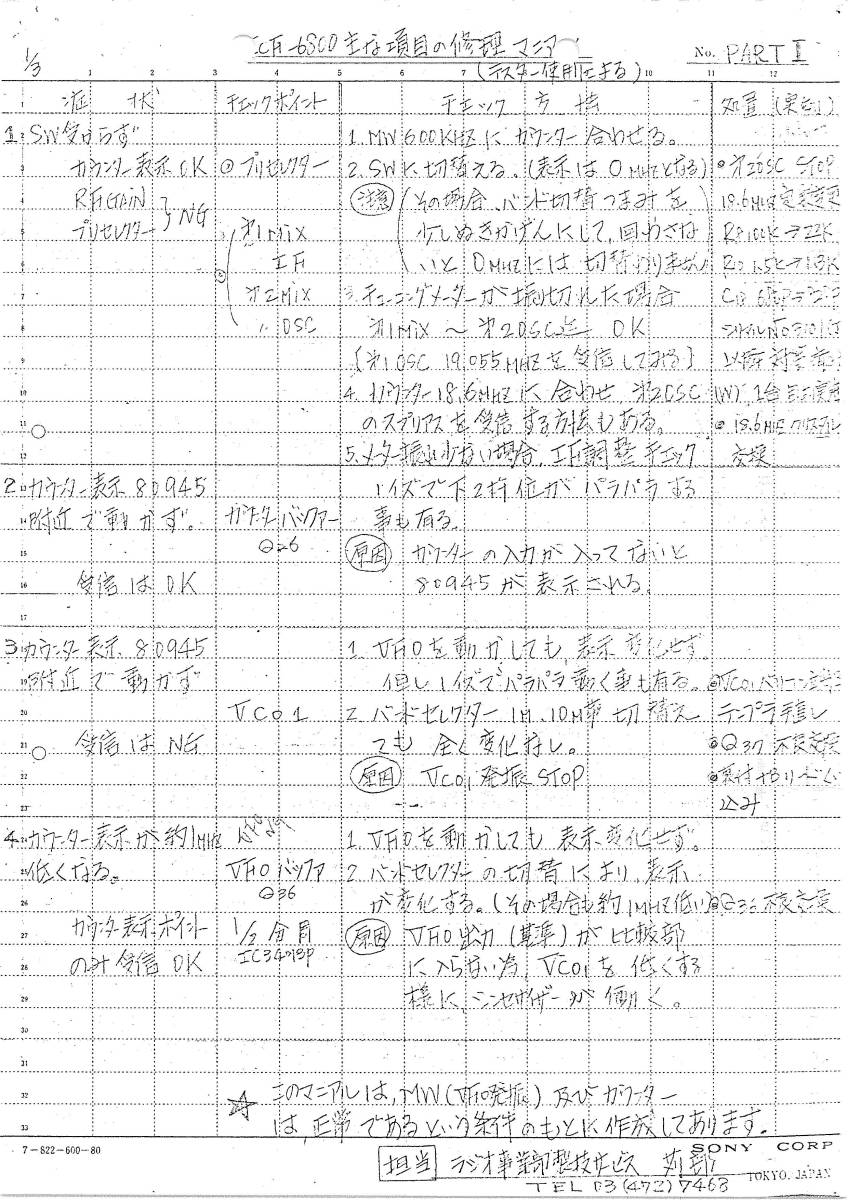 主な項目の修理マニア
(テスター使用による)
No. PART I
1/3
1 2 3 4 5 6 7 8 9 10 11 12
症状 チェックポイント チェック方法 処置
1 SW受からず
カウンター表示OK
RF GAIN
プリセレクター } NG
① プリセレクター
② 第1MIX
IF
第2MIX
〃 OSC
1. MW 600KHZにカウンター合わせる。
2. SWに切替える。(表示は0MHZとなる)
注意 (その場合、バンド切替つまみを
少しぬきかげんにして、回わさな
いと0MHZには切替わりません)
3. チューニングメーターが振切れた場合
第1MIX ～ 第2OSC迄 OK
(第1OSC 19.055MHZを受信してみる)
4. カウンター18.6MHZに合わせ 第2OSC
のスプリアスを受信する方法もある。
5. メーター振れ少ない場合、IF調整チェック
第2OSC STOP
18.6MHZ
18.6MHZ
交換
2 カウンター表示 80945
附近で動かず。
受信はOK
カウンターバッファー
Q26
ノイズで下2桁位がパラパラする
事も有る。
原因 カウンターの入力が入ってないと
80945が表示される。
3 カウンター表示 80945
附近で動かず
受信はNG
VCO1
1. VFOを動かしても、表示変化せず。
但しノイズでパラパラ動く事も有る。
2. バンドセレクター1M、10M 切替え
ても全く変化なし。
原因 VCO1発振STOP
Q37 不良交換
込み
4 カウンター表示が約1MHZ
低くなる。
カウンター表示ポイント
のみ受信OK
VFO NG
VFOバッファ
Q36
1/2分周
1. VFOを動かしても表示変化せず。
2. バンドセレクターの切替により、表示
が変化する。(その場合も約1MHZ低い)
原因 VFO出力(基準)が比較部
に入らない為、VCO1を低くする
様に、シンセサイザーが働く。
Q36 不良交換
☆ このマニアルは、MW(VFO発振)及びカウンター
は、正常であるという条件のもとに作成してあります。
7-822-600-80
SONY CORP
TOKYO, JAPAN
担当 ラジオ事業部
TEL 03(472)7463